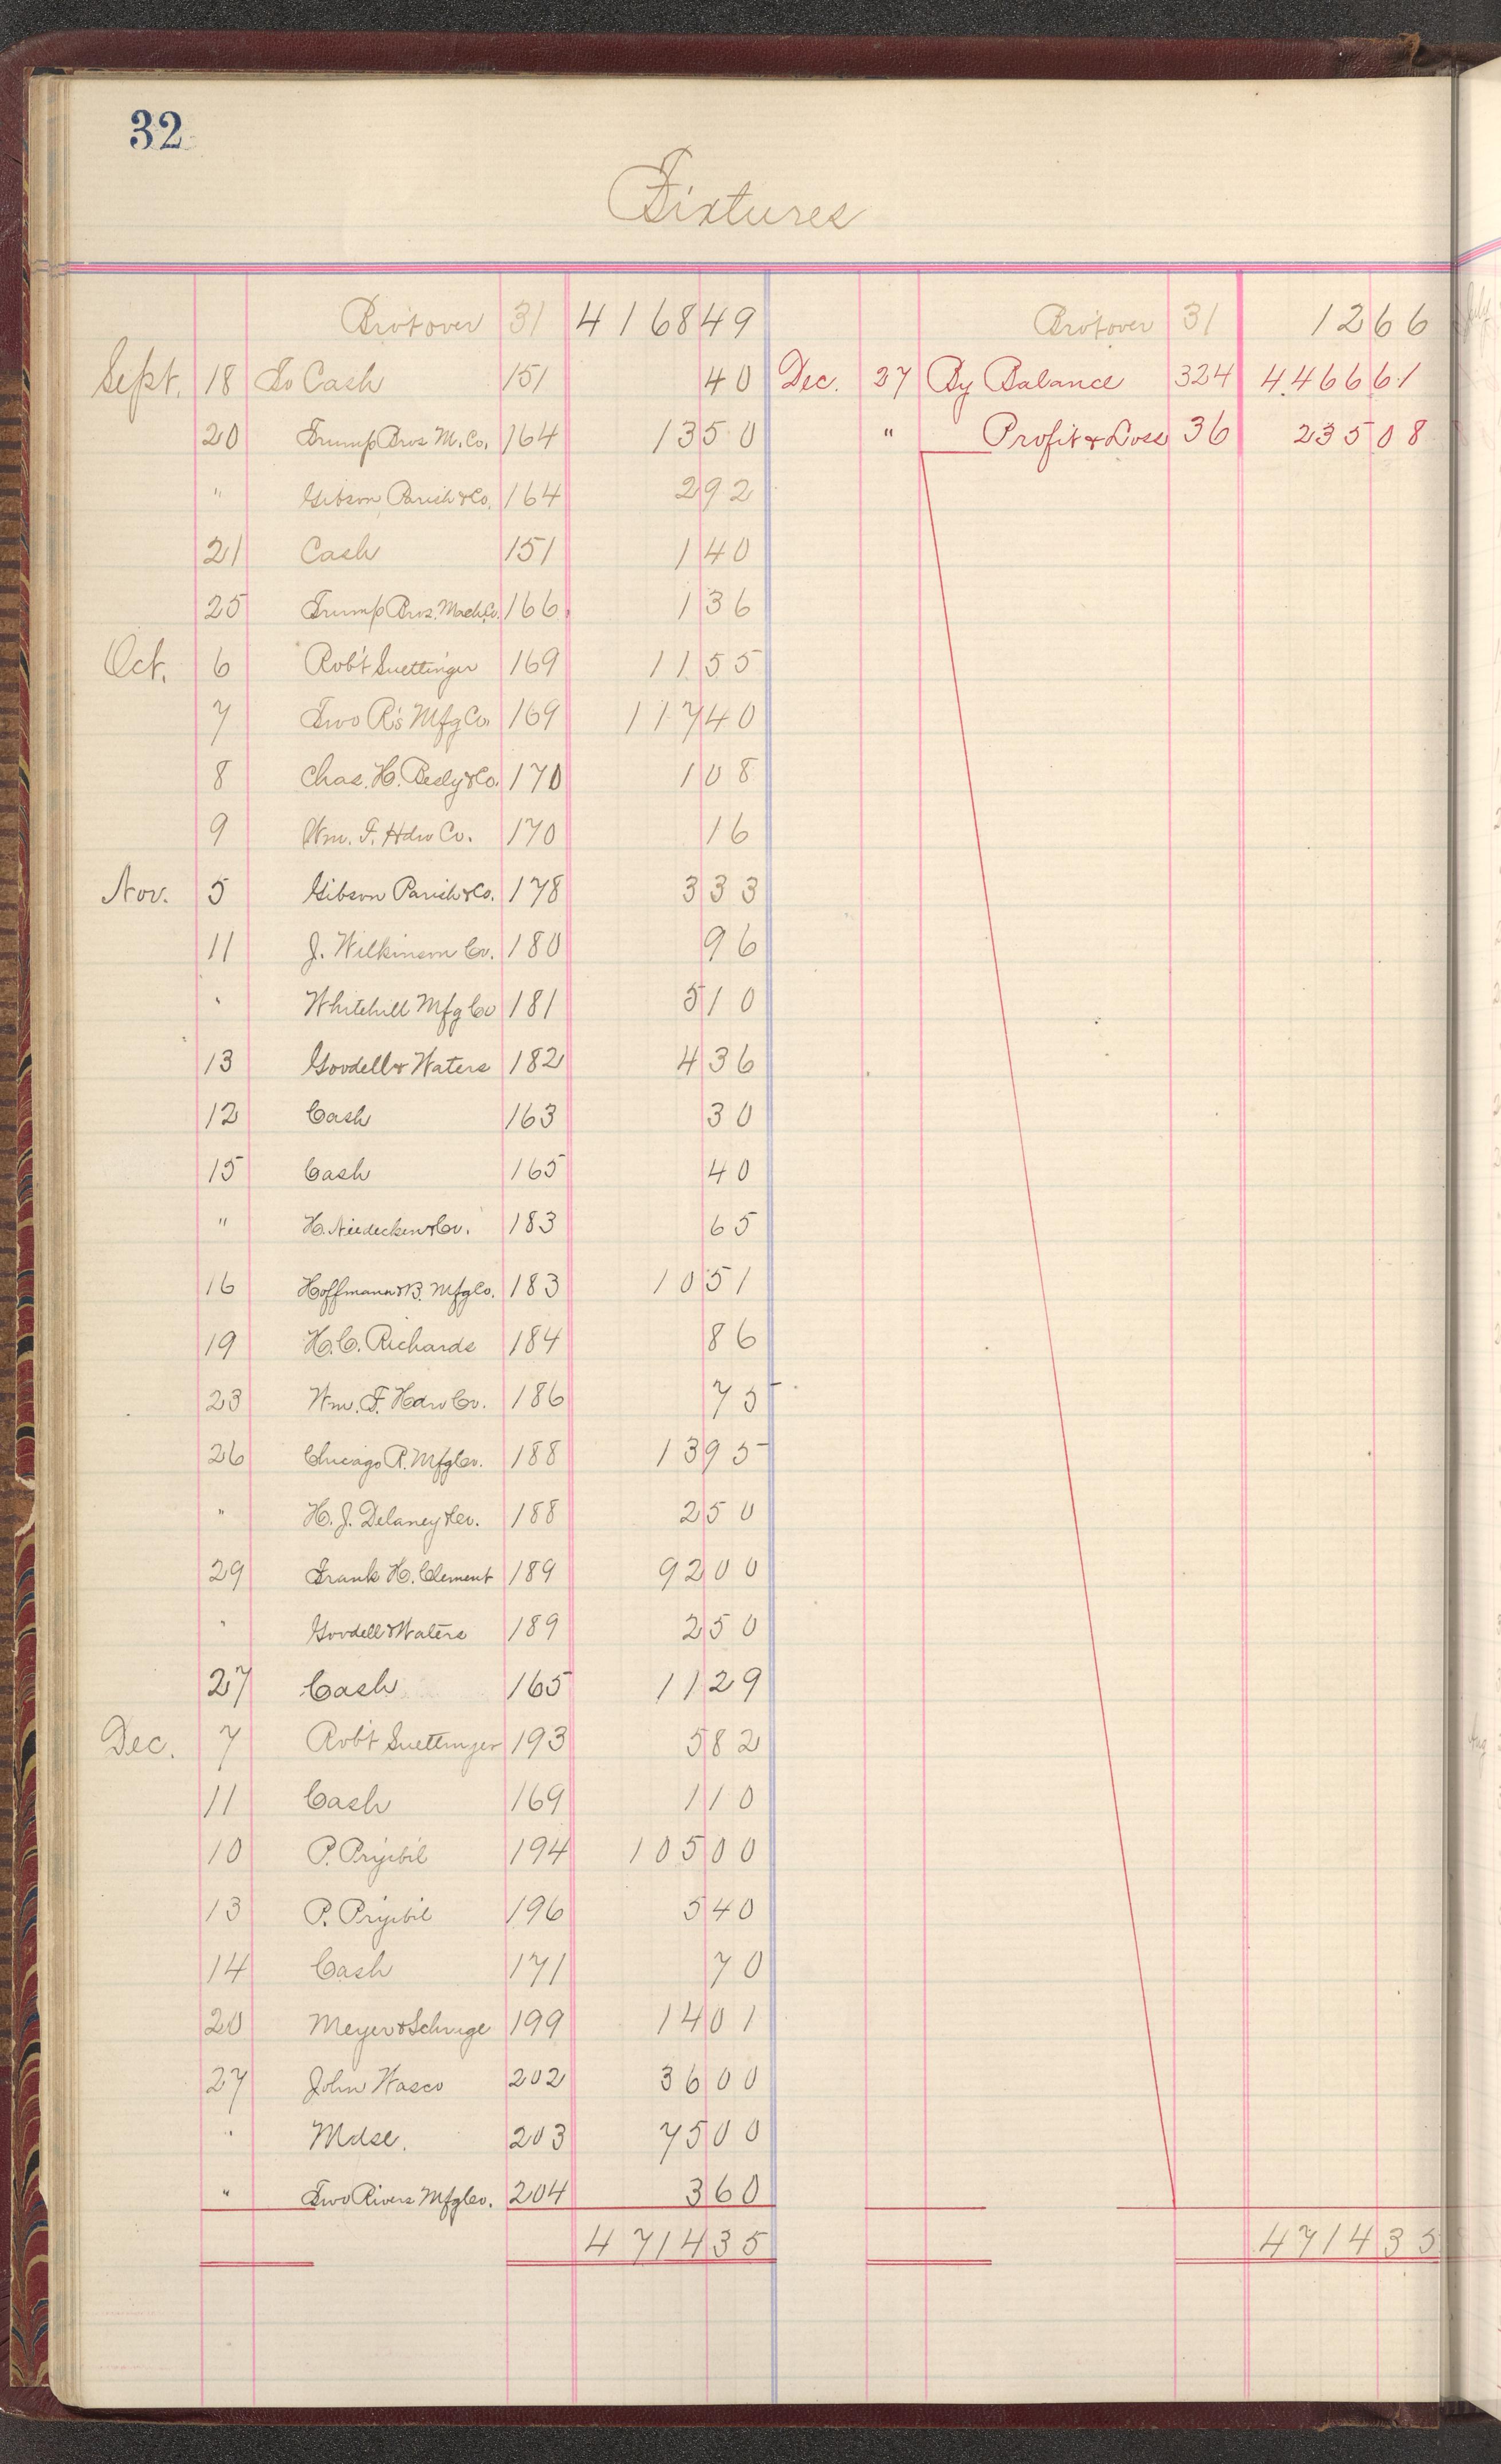 32
Fixtures
Bro't over 31 4168 49
Sept. 18 To Cash 151 40
20 Trump Bros M. Co. 164 13 50
" Gibson Parish & Co. 164 2 92
21 Cash 151 1 40
25 Trump Bros. Mach. Co. 166 1 36
Oct. 6 Rob't Suettinger 169 11 55
7 Two R's Mfg Co. 169 117 40
8 Chas. H. Besly & Co. 170 1 08
9 Wm. F. Hdw Co. 170 16
Nov. 5 Gibson Parish & Co. 178 3 33
11 J. Wilkinson Co. 180 96
" Whitehill Mfg Co 181 5 10
13 Goodell & Waters 182 4 36
12 Cash 163 30
15 Cash 165 40
" H. Niedecken & Co. 183 65
16 Hoffmann & B. Mfg Co. 183 10 51
19 H. C. Richards 184 86
23 Wm. F. Hdw Co. 186 75
26 Chicago R. Mfg Co. 188 13 95
" H. J. Delaney & Co. 188 2 50
29 Frank H. Clement 189 92 00
" Goodell & Waters 189 2 50
27 Cash 165 11 29
Dec. 7 Rob't Suettinger 193 5 82
11 Cash 169 1 10
10 P. Pryibil 194 105 00
13 P. Pryibil 196 5 40
14 Cash 171 70
20 Meyer & Schuge 199 14 01
27 John Wasco 202 36 00
" Mdse. 203 75 00
" Two Rivers Mfg Co. 204 3 60
4714 35
Bro't over 31 12 66
Dec. 27 By Balance 324 4.466 61
" Profit & Loss 36 235 08
4714 35